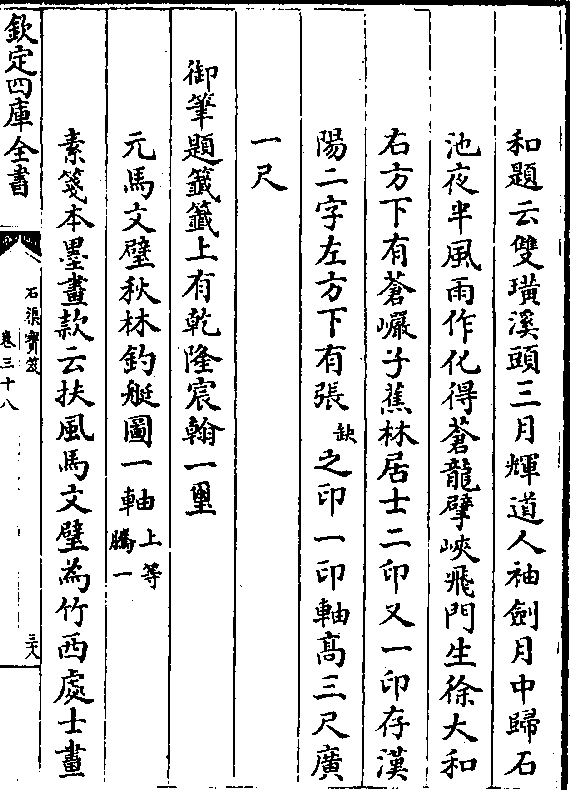 和題云雙璜溪頭三月輝道人袖劍月中歸石
池夜半風雨作化得蒼龍擘峽飛門生徐大和
右方下有蒼巗子蕉林居士二印又一印存漢
陽二字左方下有張缺之印一印軸髙三尺廣
一尺
御筆題籤籤上有乾隆宸翰一璽
元馬文璧秋林釣艇圖一軸上等騰一
素箋本墨畫款云扶風馬文璧為竹西處士畫
欽定四庫全書
石渠寶笈
卷三十八